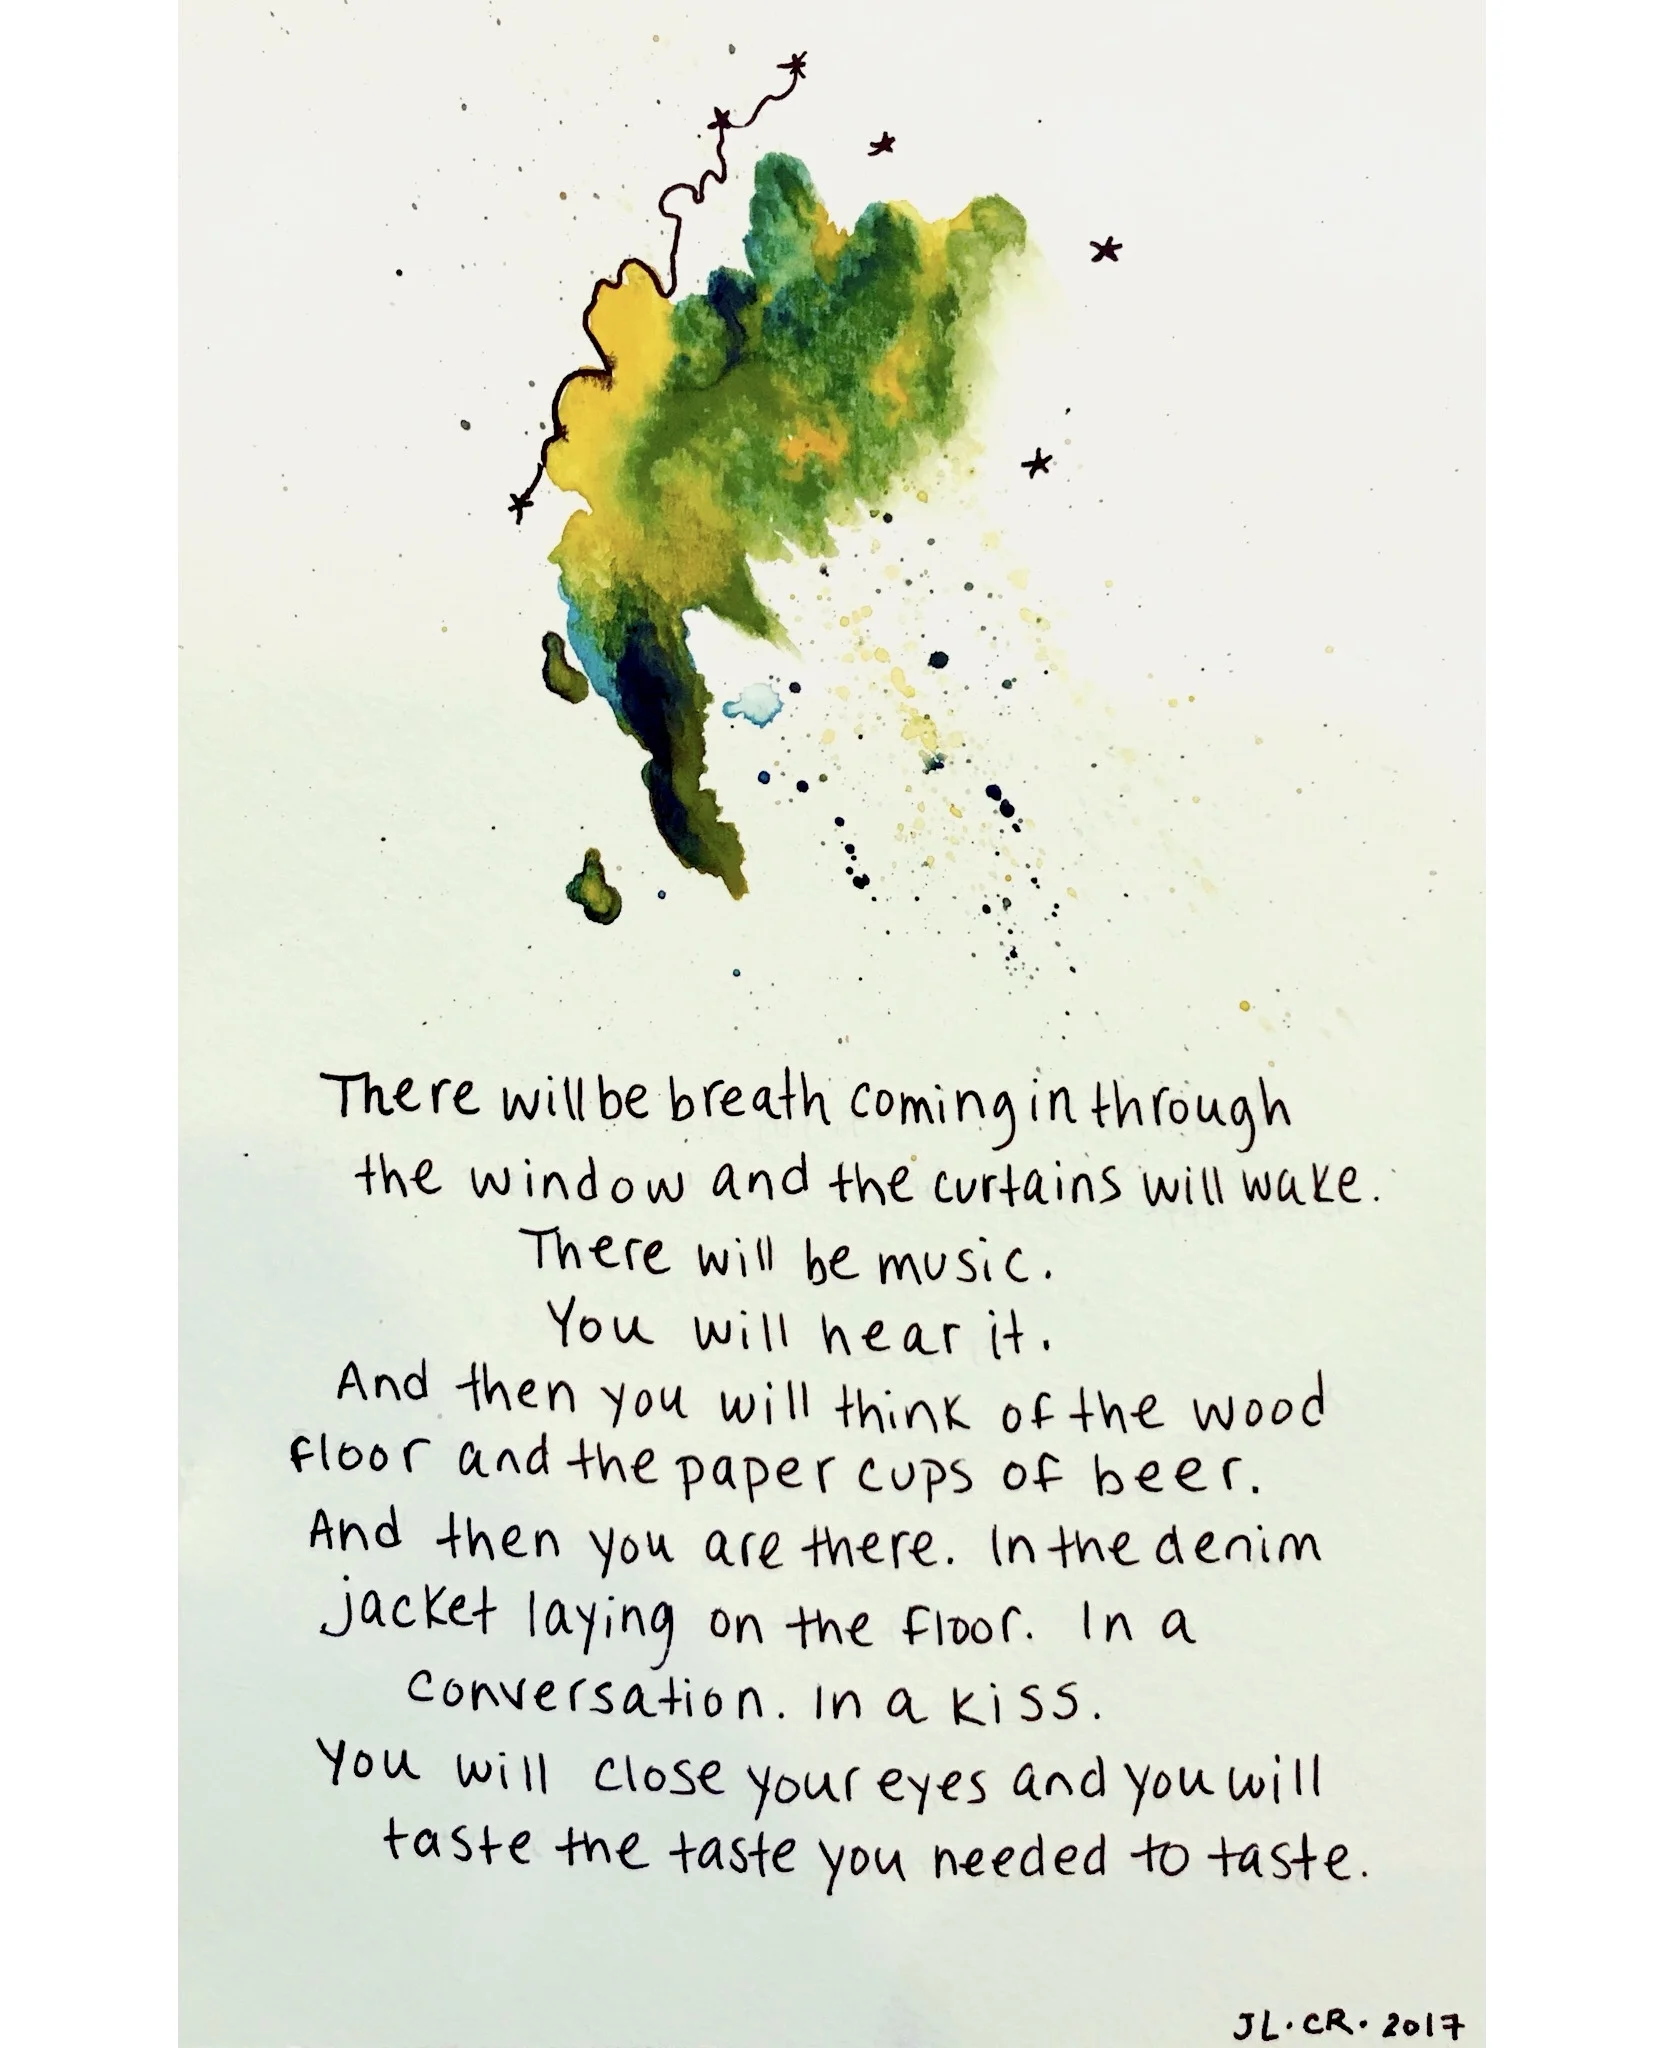 There will be breath coming in through
the window and the curtains will wake.
There will be music.
You will hear it.
And then you will think of the wood
floor and the paper cups of beer.
And then you are there. In the denim
jacket laying on the floor. In a
conversation. In a kiss.
You will close your eyes and you will
taste the taste you needed to taste.
JL·CR·2017